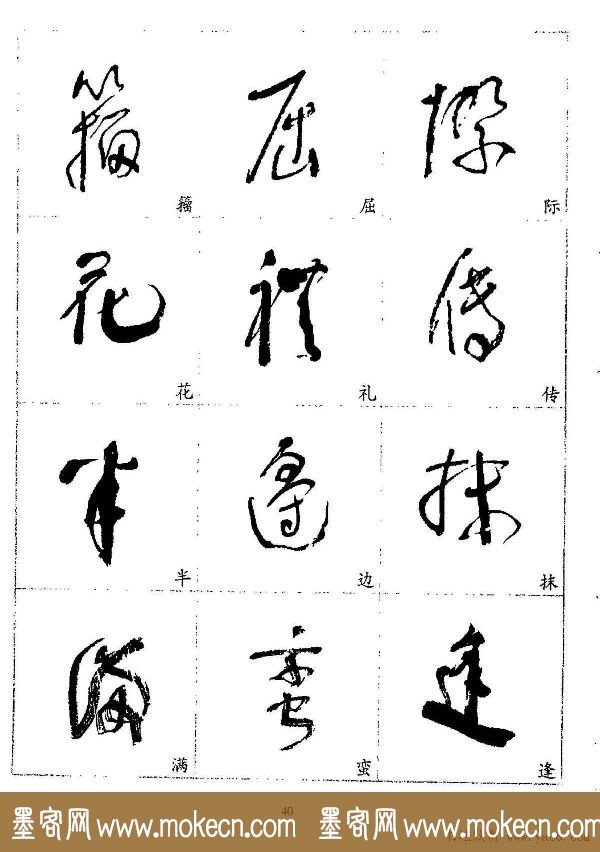 籀 屈 际
花 礼 传
半 边 抹
满 蛮 逢
40
墨客网 www.mokecn.com 墨客网 www.mokecn.com